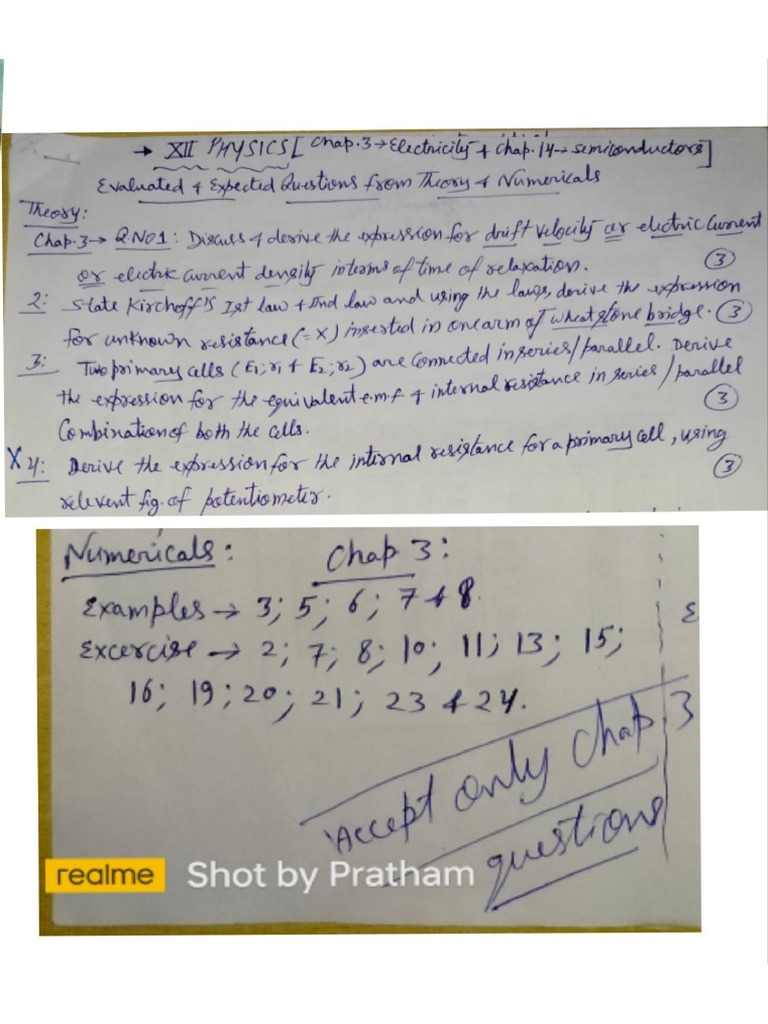 → XII PHYSICS [Chap.3→Electricity + Chap.14→semiconductors]
Evaluated & Expected Questions from Theory & Numericals
Theory:
Chap.3→ Q.NO1: Discuss & derive the expression for drift velocity or electric current
or electric current density interms of time of relaxation. (3)
2: State Kirchoff's Ist law & IInd law and using the laws, derive the expression
for unknown resistance (=X) inserted in one arm of wheatstone bridge. (3)
3: Two primary cells (E1;r1 & E2;r2) are connected in series/parallel. Derive
the expression for the equivalent e.m.f & internal resistance in series/parallel
Combination of both the cells. (3)
X 4: Derive the expression for the internal resistance for a primary cell, using
relevent fig. of potentiometer. (3)
Numericals: Chap 3:
Examples → 3; 5; 6; 7 & 8.
Excercise → 2; 7; 8; 10; 11; 13; 15;
16; 19; 20; 21; 23 & 24.
Accept only Chap.3
questions
realme Shot by Pratham